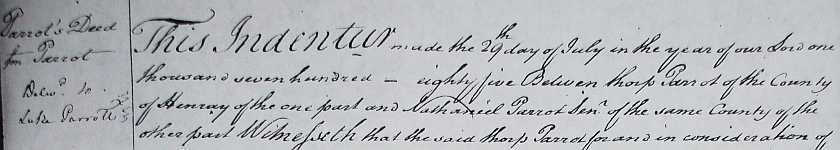 Parrot's Deed
fm Parrot
Delvd. to
Luke Parrott
This Indentur made the 29th day of July in the year of our Lord one
thousand seven hundred — eighty five Between thorp Parrot of the County
of Henray of the one part and Nathaniel Parrot Senr. of the same County of the
other part Witnesseth that the said thorp Parrot for and in consideration of